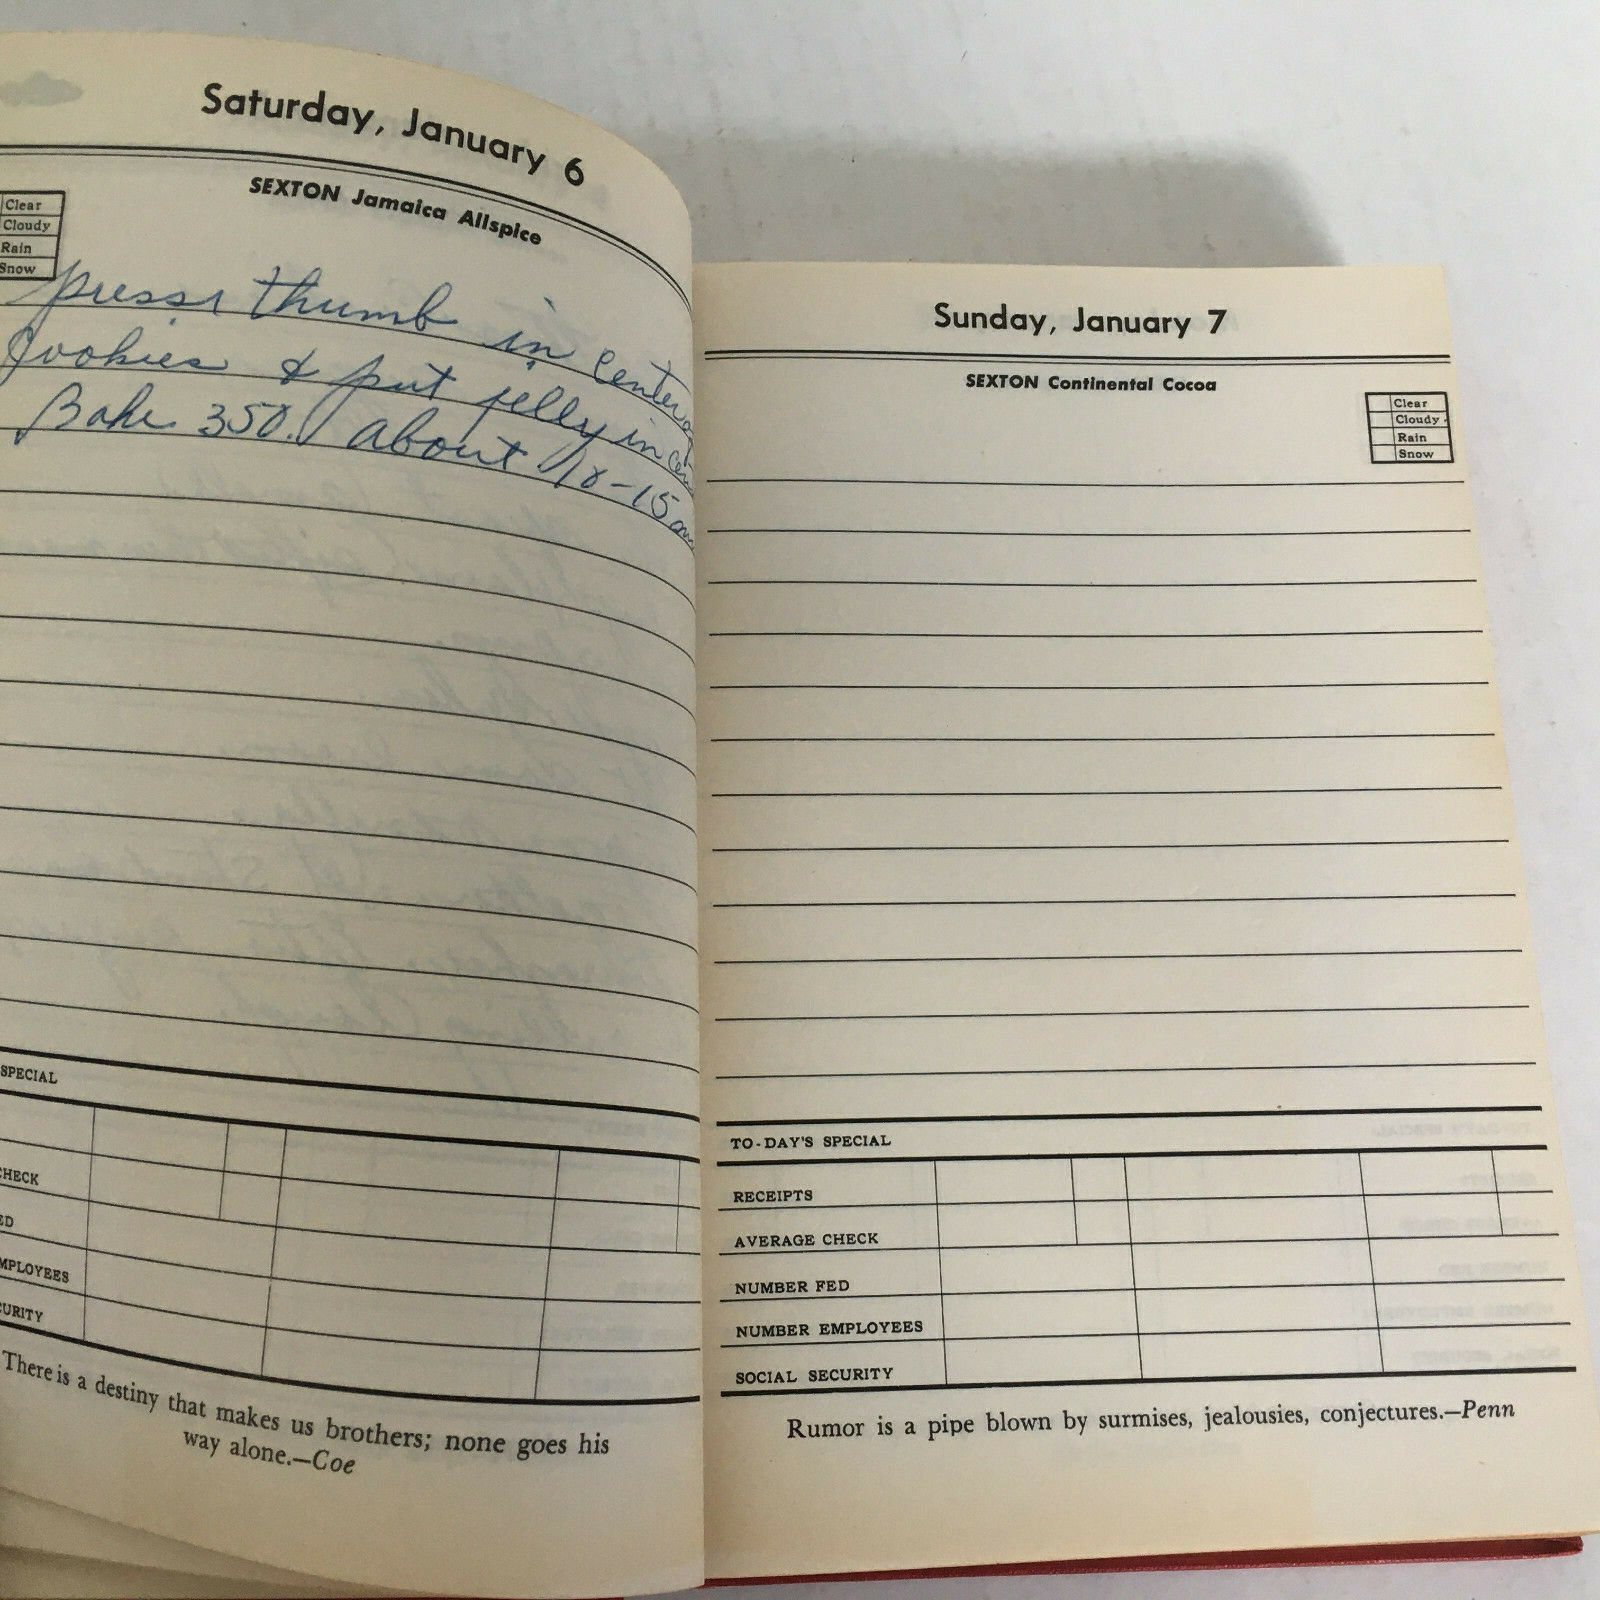 Saturday, January 6
SEXTON Jamaica Allspice
Clear
Cloudy
Rain
Snow
press thumb in center of
Cookies & put jelly in cen
Bake 350. About 10-15 m
SPECIAL
CHECK
ED
MPLOYEES
CURITY
There is a destiny that makes us brothers; none goes his
way alone.—Coe
Sunday, January 7
SEXTON Continental Cocoa
Clear
Cloudy
Rain
Snow
TO-DAY'S SPECIAL
RECEIPTS
AVERAGE CHECK
NUMBER FED
NUMBER EMPLOYEES
SOCIAL SECURITY
Rumor is a pipe blown by surmises, jealousies, conjectures.—Penn